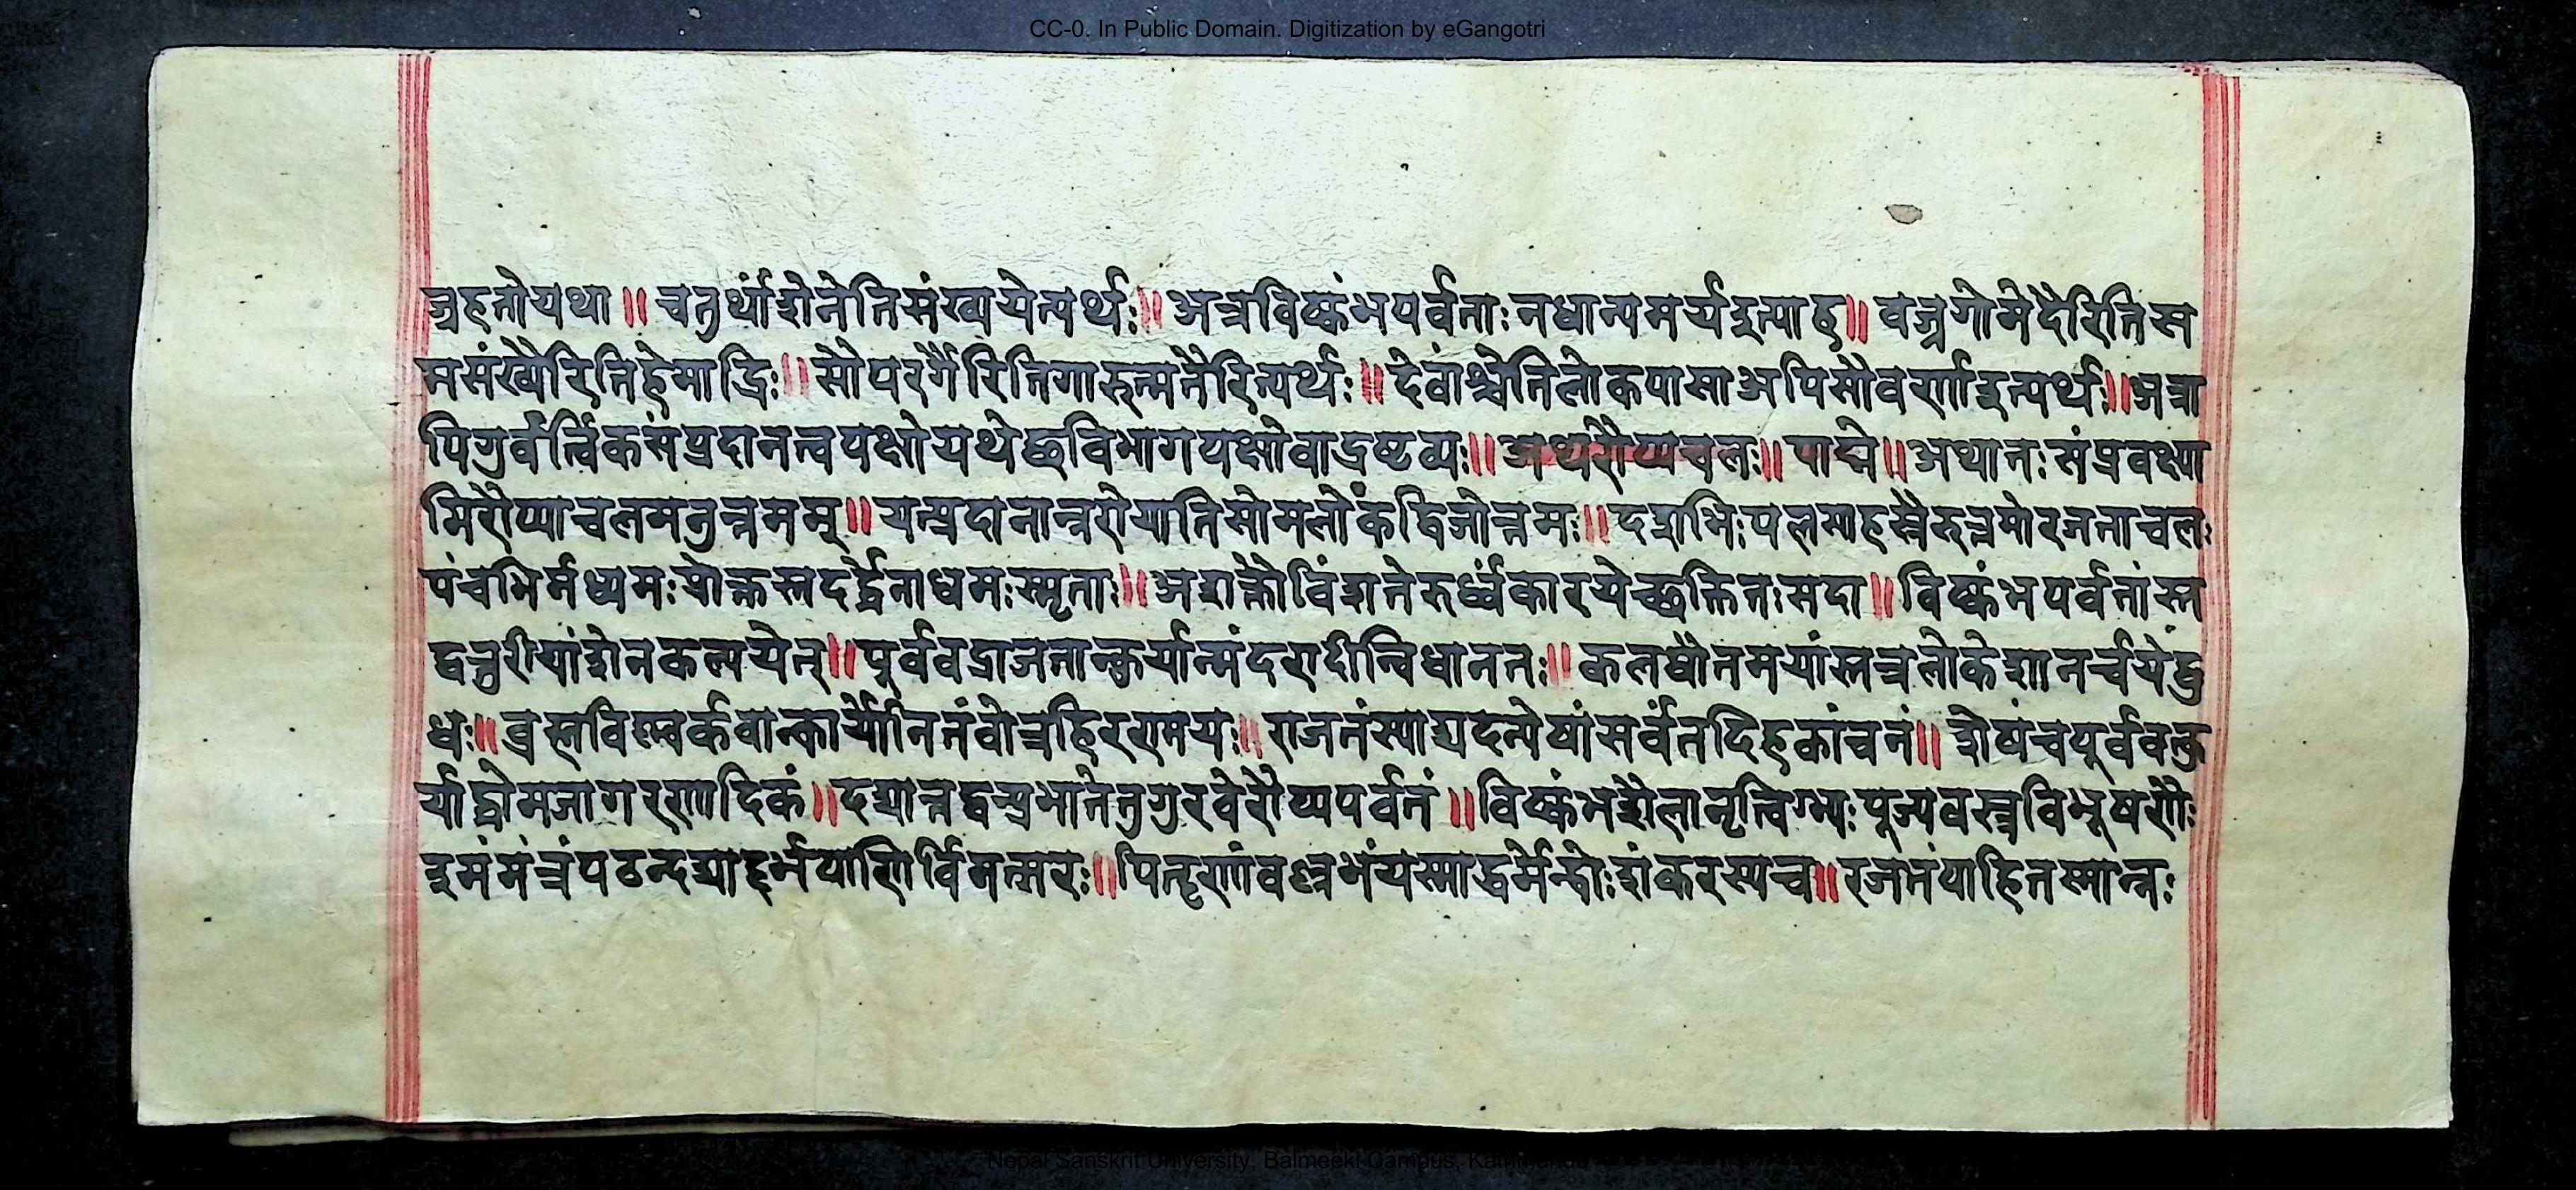 CC-0. In Public Domain. Digitization by eGangotri
ज्रहतोयथा॥ चतुर्थांशेनेतिसंख्ययेत्यर्थः॥ अत्रविष्कंभपर्वताः नधान्यमर्यइत्याह॥ वज्रगोमेदैरितिस
मसंख्यैरितिहेमाद्रिः॥ सोपर्णैरितिगारुत्मतैरित्यर्थः॥ देवांश्चेतिलोकपासाअपिसौवर्णाइत्यर्थः॥ अत्रा
पिगुर्वर्त्विकसंप्रदानत्वपक्षोयथेछविभागपक्षोवाद्रष्टव्यः॥ अथरौप्यचलः॥ पाद्मे॥ अथातः संप्रवक्ष्या
मिरौप्याचलमनुत्तमम्॥ यत्प्रदानान्नरोयातिसोमलोकंद्विजोत्तमः॥ दशभिः पलसाहस्रैरुत्तमोरजताचलः
पंचभिर्मध्यमः प्रोक्तस्तदर्द्धेनाधमः स्मृताः॥ अशक्तोविंशतेरुर्ध्वंकारयेच्छक्तितः सदा॥ विष्कंभपर्वतांस्त
द्वत्तुरीयांशेनकल्पयेत्॥ पूर्ववद्राजतान्कुर्यान्मंदरादीन्विधानतः॥ कलधौतमयांस्तत्रलोकेशानर्चयेद्बु
धः॥ ब्रह्मविष्ण्वर्कवान्कार्योनितंवोत्रहिरण्मयः॥ राजतंस्याद्यदन्येषांसर्वंतदिहकांचनं॥ शेषंचपूर्ववत्कु
र्याद्धोमजागरणादिकं॥ दद्यात्तद्वत्प्रभातेतुगुरवेरौप्यपर्वतं॥ विष्कंभशैलानृत्विग्भ्यः पूज्यवस्त्रविभूषणैः
इमंमंत्रंपठन्दद्याद्दर्भपाणिर्विमत्सरः॥ पितॄणांवल्लभंयस्माद्धर्मेन्द्रोः शंकरस्यच॥ रजतंपाहितस्मान्नः
Nepal Sanskrit University, Balmeeki Campus, Kathmandu